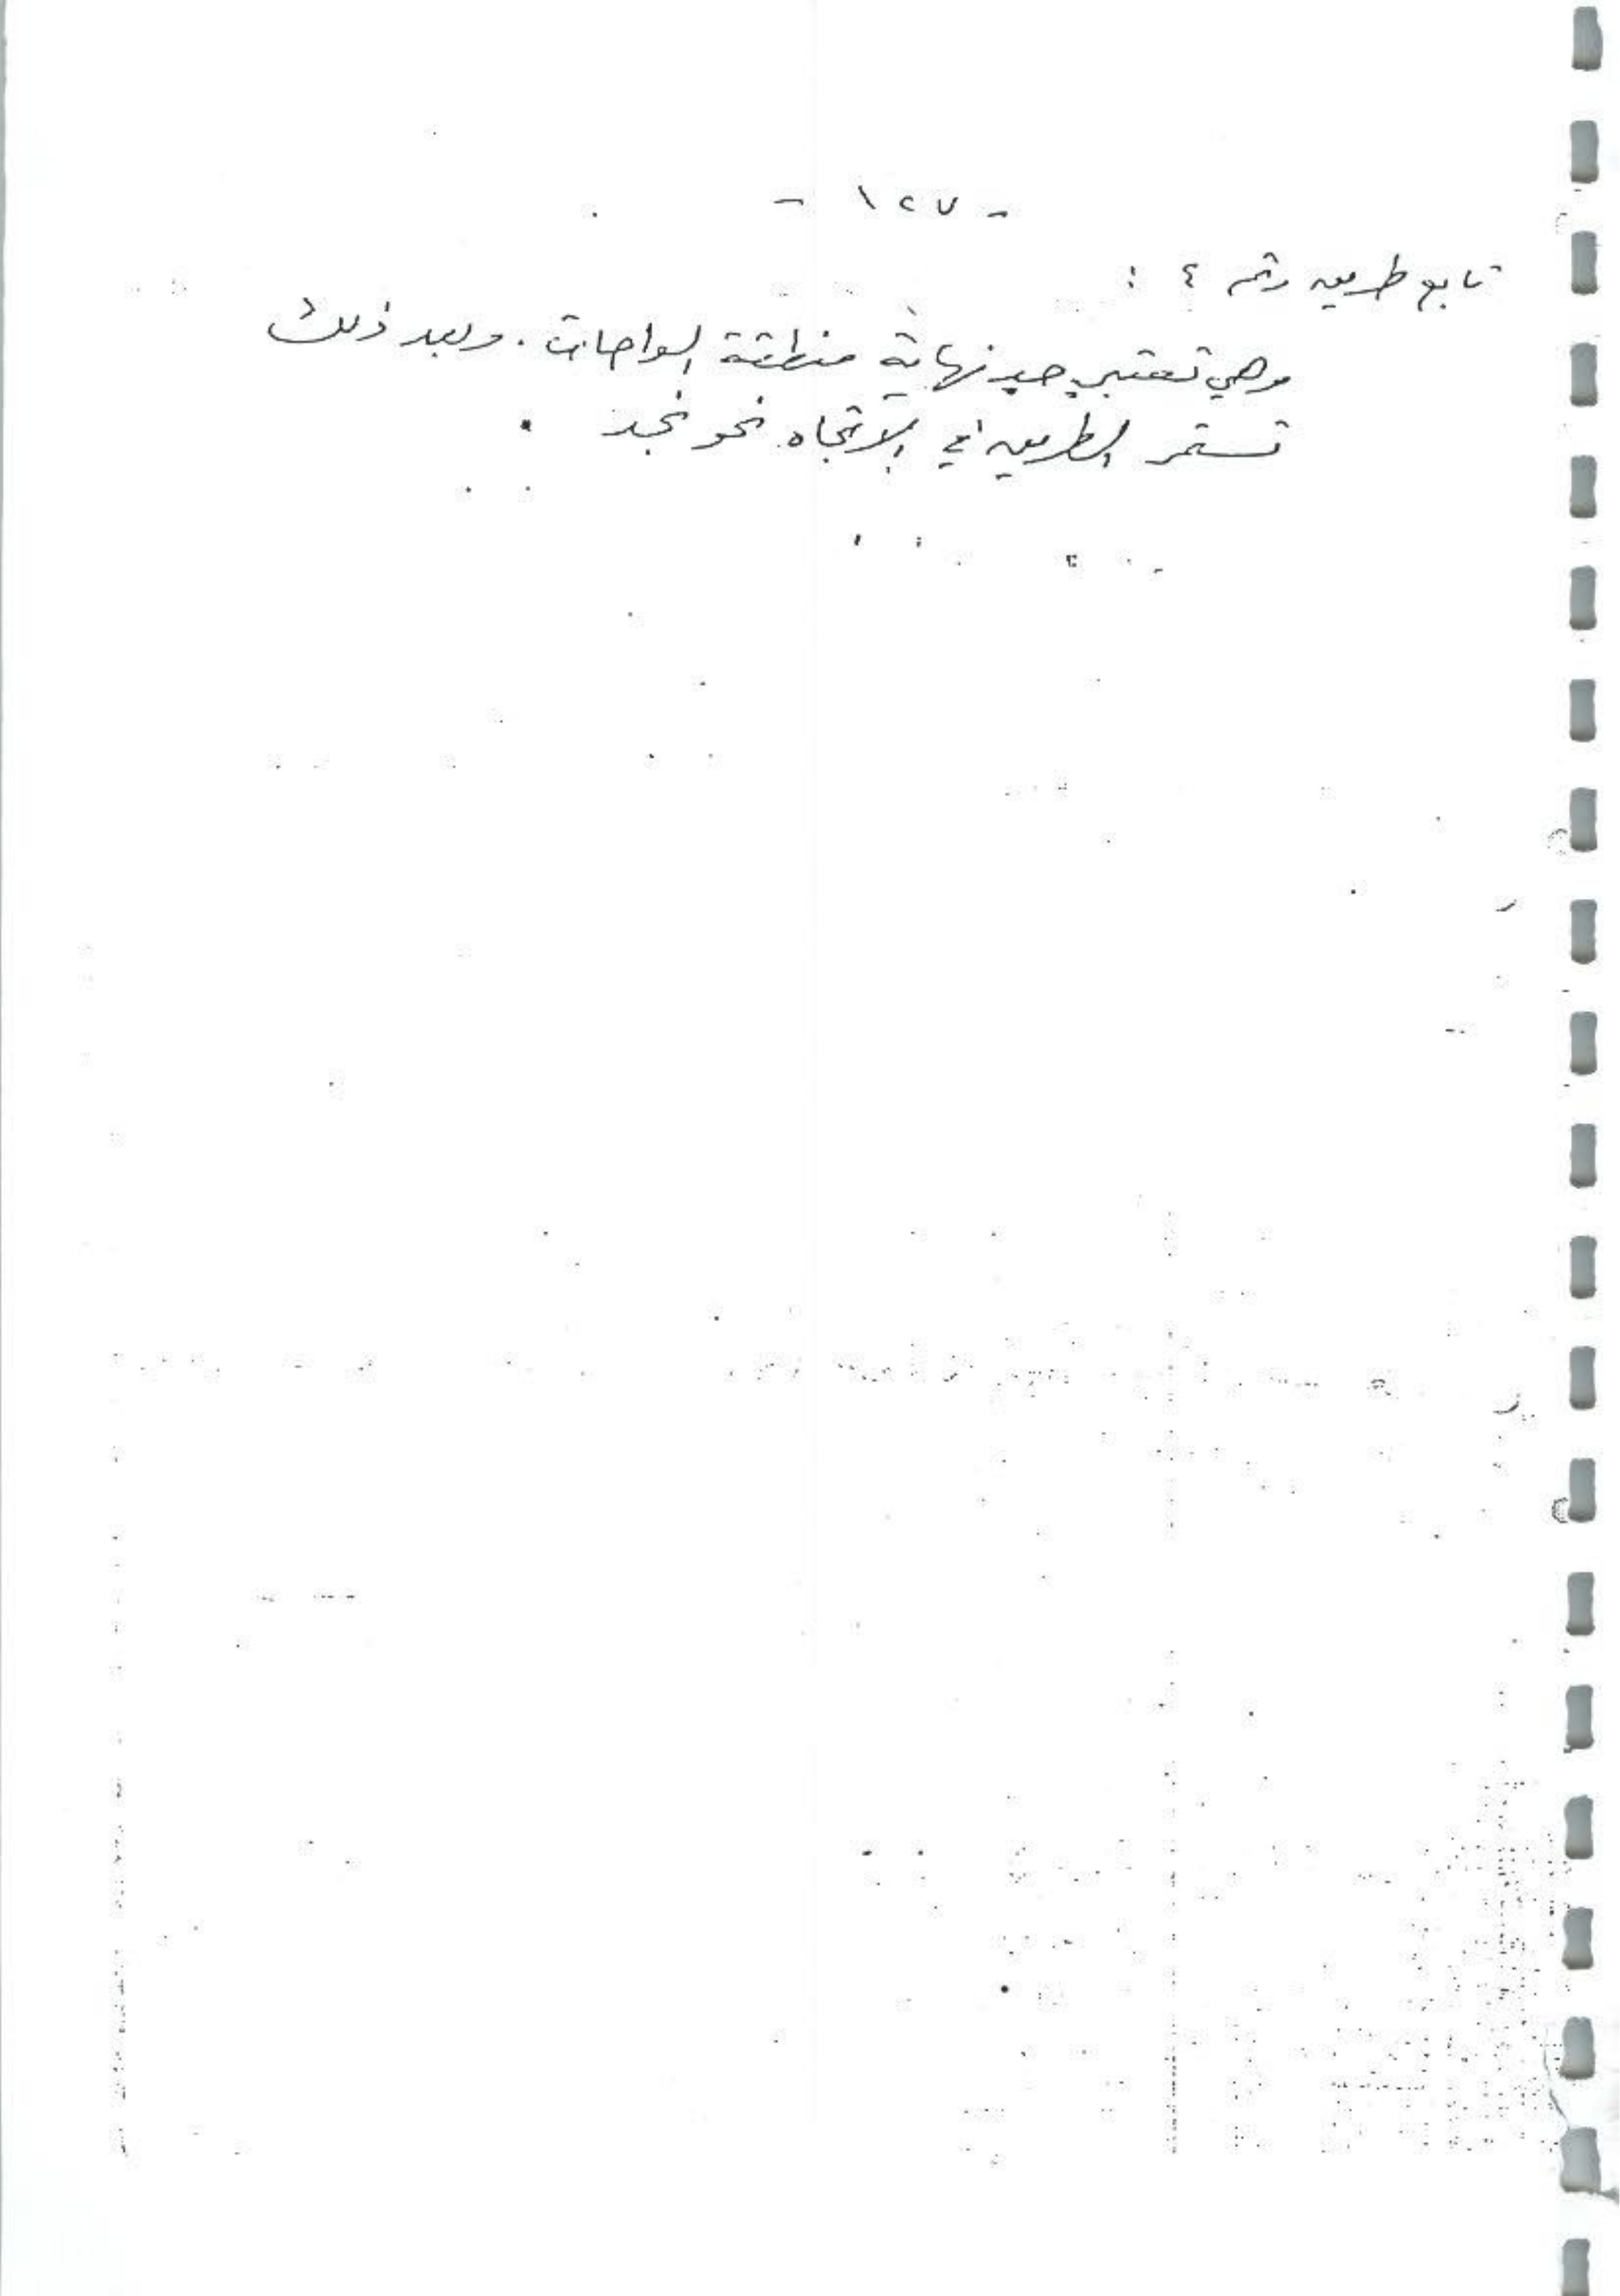 - ١٢٧ -
تابع طريق رقم ٤ :
وهي تعتبر نهاية منطقة الواحات . وبعد ذلك
تستمر الطريق في الاتجاه نحو نجد .